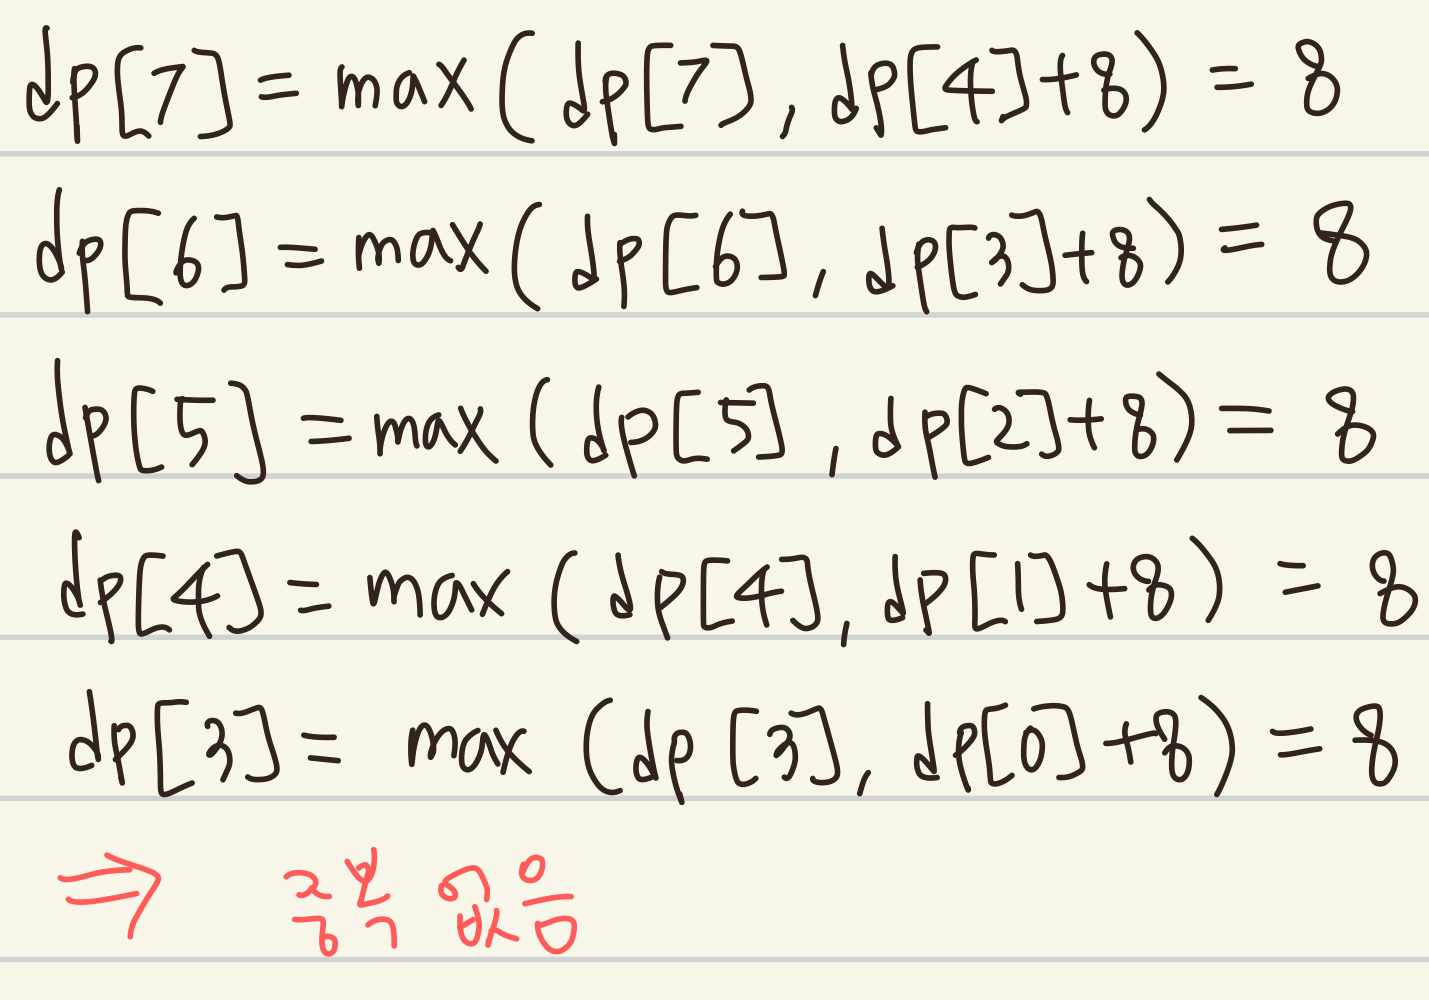 dp[7] = max(dp[7], dp[4]+8) = 8
dp[6] = max(dp[6], dp[3]+8) = 8
dp[5] = max(dp[5], dp[2]+8) = 8
dp[4] = max(dp[4], dp[1]+8) = 8
dp[3] = max(dp[3], dp[0]+8) = 8
⇒ 중복 없음